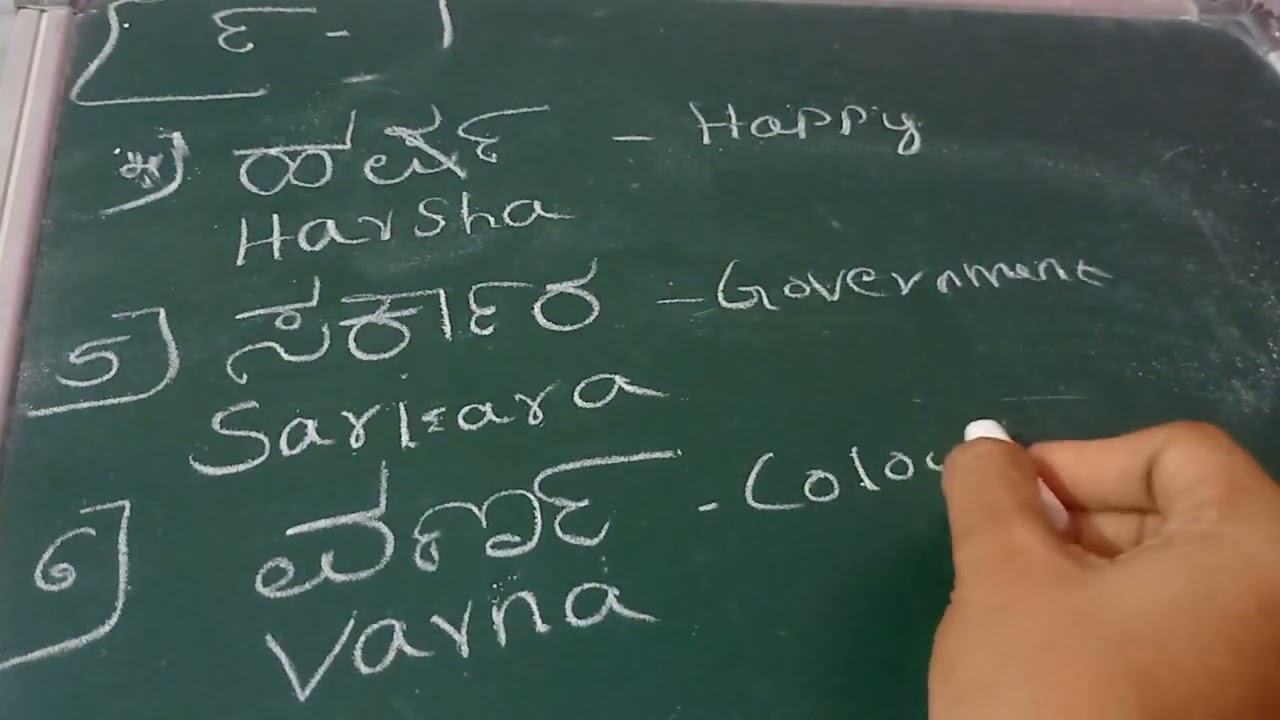 ೯ - 1
ಹರ್ಷ - Happy
Harsha
5] ಸರ್ಕಾರ - Government
Sarkara
6] ವರ್ಣ - Colou
Varna